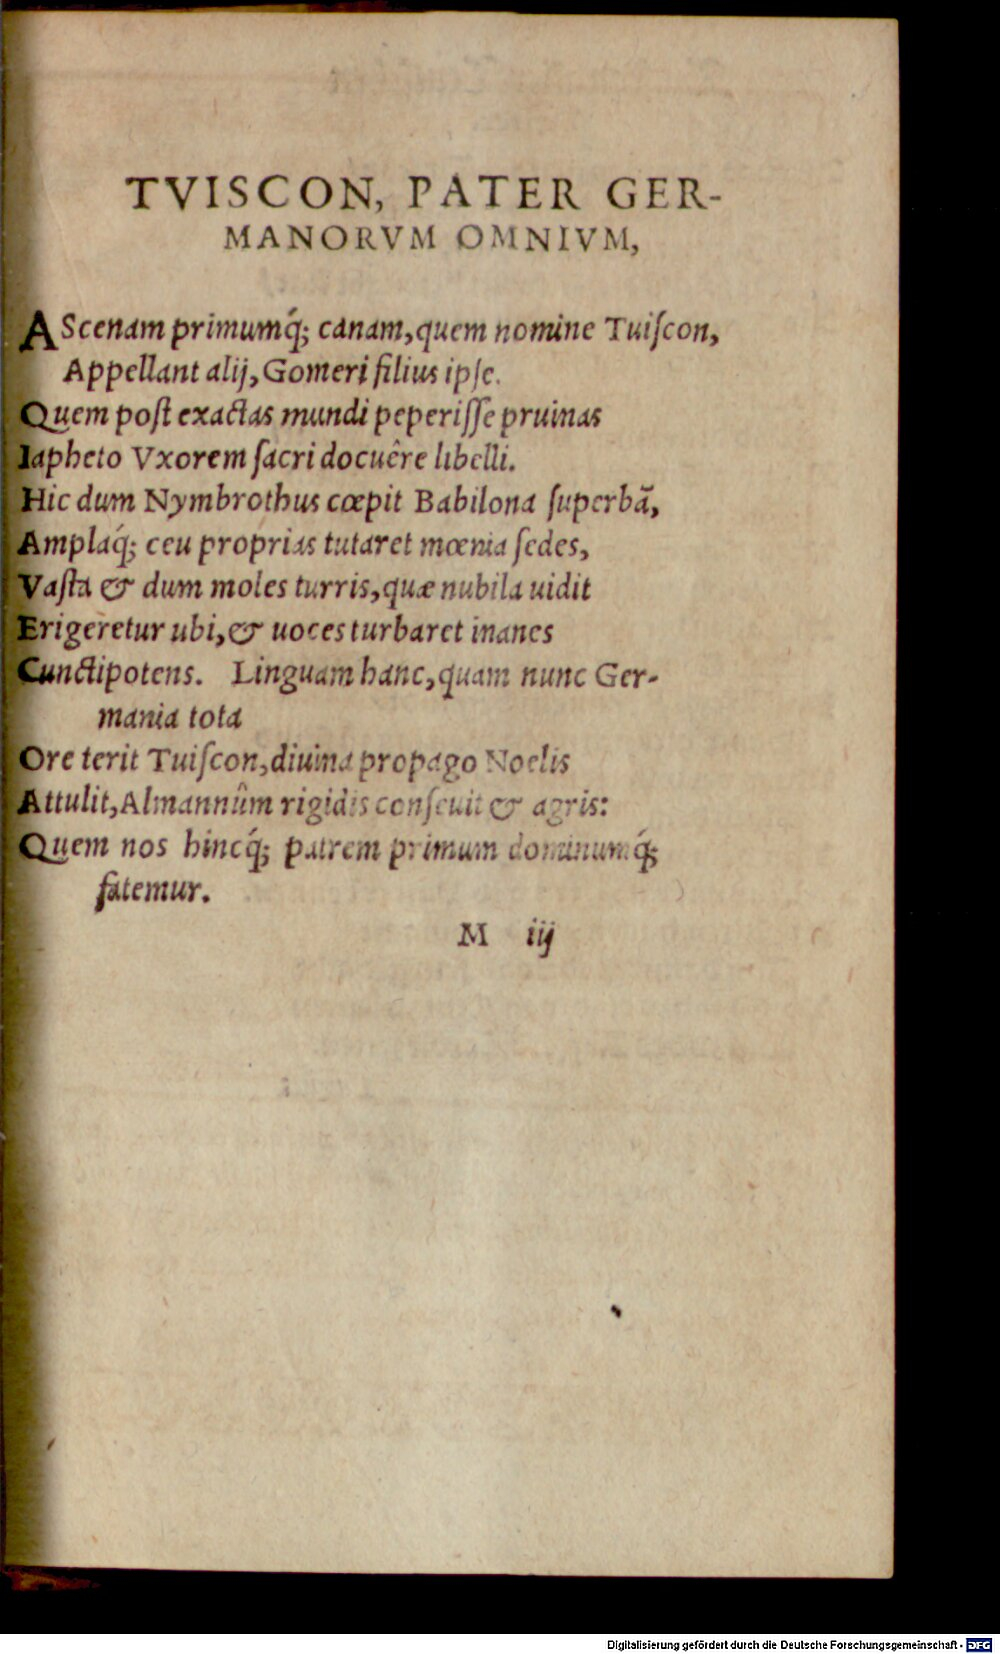 TVISCON, PATER GER-
MANORVM OMNIVM,
AScenam primumq́; canam, quem nomine Tuiſcon,
Appellant alij, Gomeri filius ipſe.
Quem poſt exactas mundi peperiſſe pruinas
Iapheto Vxorem ſacri docuêre libelli.
Hic dum Nymbrothus cœpit Babilona ſuperbā,
Amplaq́; ceu proprias tutaret mœnia ſedes,
Vaſta & dum moles turris, quæ nubila uidit
Erigeretur ubi, & uoces turbaret inanes
Cunctipotens. Linguam hanc, quam nunc Ger-
mania tota
Ore terit Tuiſcon, diuina propago Noelis
Attulit, Almannûm rigidis conſeuit & agris:
Quem nos hincq́; patrem primum dominumq́;
fatemur.
M iij
Digitalisierung gefördert durch die Deutsche Forschungsgemeinschaft - DFG